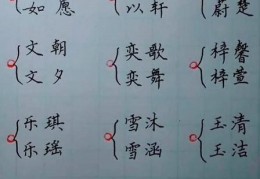 如愿 以轩 蔚楚
文朝 奕歌 梓馨
文夕 奕舞 梓萱
乐琪 雪沐 玉清
乐瑶 雪涵 玉洁